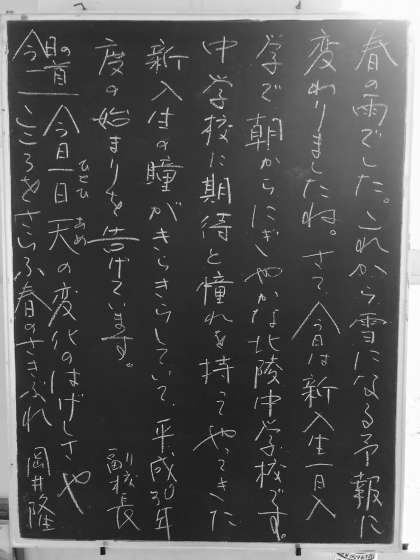 春の雨でした。これから雪になる予報に
変わりましたね。さて、今日は新入生一日入
学で朝からにぎやかな北陵中学校です。
中学校に期待と憧れを持ってやってきた
新入生の瞳がきらきらしていて、平成30年
度の始まりを告げています。 副校長
今日の一首 今日一日天の変化のはげしさや
ひとひ あめ
こころをさらふ春のさきぶれ 岡井隆